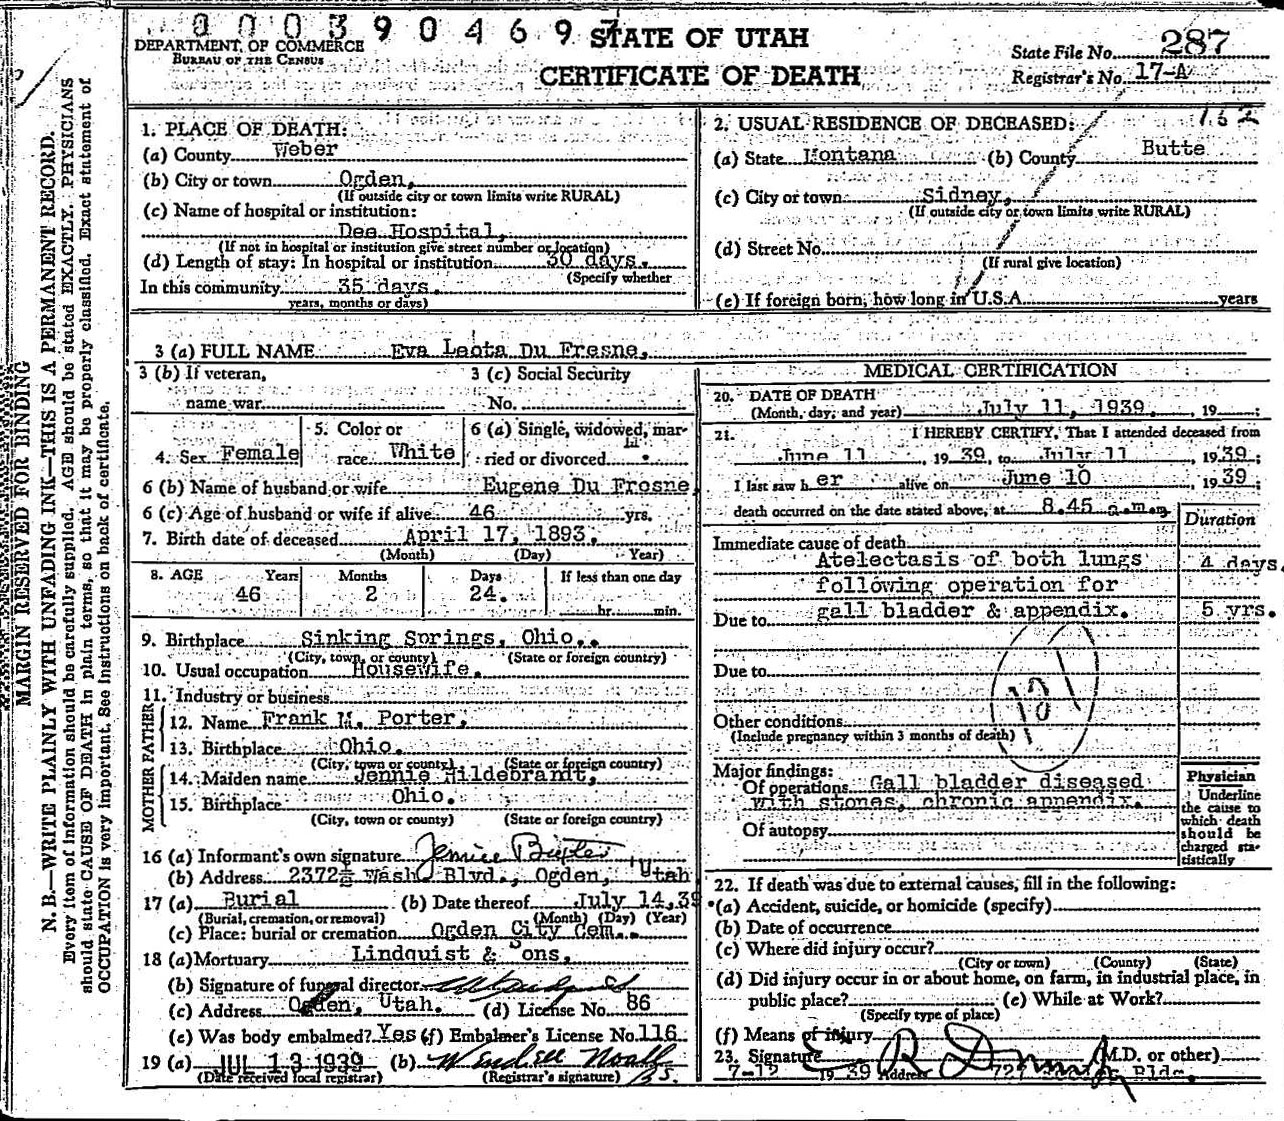 000390469
STATE OF UTAH
DEPARTMENT OF COMMERCE
BUREAU OF THE CENSUS
CERTIFICATE OF DEATH
State File No. 287
Registrar's No. 17-A
162
MARGIN RESERVED FOR BINDING
N. B.—WRITE PLAINLY WITH UNFADING INK—THIS IS A PERMANENT RECORD.
Every item of information should be carefully supplied. AGE should be stated EXACTLY. PHYSICIANS
should state CAUSE OF DEATH in plain terms, so that it may be properly classified. Exact statement of
OCCUPATION is very important. See instructions on back of certificate.
1. PLACE OF DEATH:
(a) County Weber
(b) City or town Ogden,
(If outside city or town limits write RURAL)
(c) Name of hospital or institution:
Dee Hospital,
(If not in hospital or institution give street number or location)
(d) Length of stay: In hospital or institution 30 days.
(Specify whether
In this community 35 days.
years, months or days)
2. USUAL RESIDENCE OF DECEASED:
(a) State Montana (b) County Butte
(c) City or town Sidney,
(If outside city or town limits write RURAL)
(d) Street No.
(If rural give location)
(e) If foreign born, how long in U.S.A. years
3 (a) FULL NAME Eva Leota Du Fresne,
3 (b) If veteran, 3 (c) Social Security
name war No.
4. Sex Female 5. Color or race White 6 (a) Single, widowed, married or divorced M.
6 (b) Name of husband or wife Eugene Du Fresne
6 (c) Age of husband or wife if alive 46 yrs.
7. Birth date of deceased April 17, 1893.
(Month) (Day) Year)
8. AGE Years Months Days If less than one day
46 2 24. hr. min.
9. Birthplace Sinking Springs, Ohio.
(City, town, or county) (State or foreign country)
10. Usual occupation Housewife.
11. Industry or business
FATHER
12. Name Frank M. Porter,
13. Birthplace Ohio.
(City, town or county) (State or foreign country)
MOTHER
14. Maiden name Jennie Hildebrandt,
15. Birthplace Ohio.
(City, town or county) (State or foreign country)
16 (a) Informant's own signature
(b) Address 2372½ Wash. Blvd., Ogden, Utah
17 (a) Burial (b) Date thereof July 14,39
(Burial, cremation, or removal) (Month) (Day) (Year)
(c) Place: burial or cremation Ogden City Cem.
18 (a) Mortuary Lindquist & Sons,
(b) Signature of funeral director
(c) Address Ogden, Utah. (d) License No. 86
(e) Was body embalmed? Yes (f) Embalmer's License No. 116
19 (a) JUL 13 1939 (b) Wendell Noall
(Date received local registrar) (Registrar's signature)
MEDICAL CERTIFICATION
20. DATE OF DEATH
(Month, day, and year) July 11, 1939. , 19 ;
21. I HEREBY CERTIFY, That I attended deceased from
June 11 , 1939, to July 11 , 1939;
I last saw her alive on June 10 , 1939;
death occurred on the date stated above, at 8.45 a.m.m
Duration
Immediate cause of death
Atelectasis of both lungs 4 days.
following operation for
Due to gall bladder & appendix. 5 yrs.
Due to
Other conditions
(Include pregnancy within 3 months of death)
Major findings:
Of operations Gall bladder diseased
with stones, chronic appendix.
Of autopsy
Physician
Underline
the cause to
which death
should be
charged sta-
tistically
22. If death was due to external causes, fill in the following:
(a) Accident, suicide, or homicide (specify)
(b) Date of occurrence
(c) Where did injury occur?
(City or town) (County) (State)
(d) Did injury occur in or about home, on farm, in industrial place, in
public place? (e) While at Work?
(Specify type of place)
(f) Means of injury
23. Signature (M.D. or other)
7-12 1939 Address Bldg.